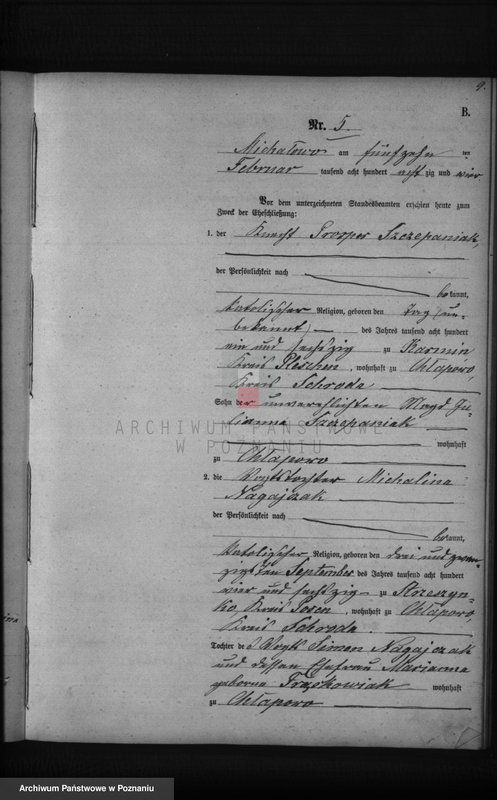 9.
B.
Nr. 5.
Michałowo am fünfzehn ten
Februar tausend acht hundert acht zig und vier
Vor dem unterzeichneten Standesbeamten erschien heute zum
Zweck der Eheschließung:
1. der Knecht Prosper Szczepaniak,
der Persönlichkeit nach
be kannt,
katolischer Religion, geboren den Tag (un-
bekannt) des Jahres tausend acht hundert
ein und sechszig zu Karmin
Kreis Pleschen, wohnhaft zu Chłaporo,
Kreis Schroda
Sohn der unverehlichten Magd Ju-
lianna Szczepaniak
wohnhaft
zu Chłaporo
2. die Vogtstochter Michalina
Nagajczak
der Persönlichkeit nach
be kannt,
katolischer Religion, geboren den drei und zwan-
zigsten September des Jahres tausend acht hundert
vier und sechszig zu Strzeszyn-
ko, Kreis Posen, wohnhaft zu Chłaporo,
Kreis Schroda.
Tochter des Vogts Simon Nagajczak
und dessen Ehefrau Marianna
geborne Frąckowiak wohnhaft
zu Chłaporo
ARCHIWUM PAŃSTWOWE
W POZNANIU
Archiwum Państwowe w Poznaniu